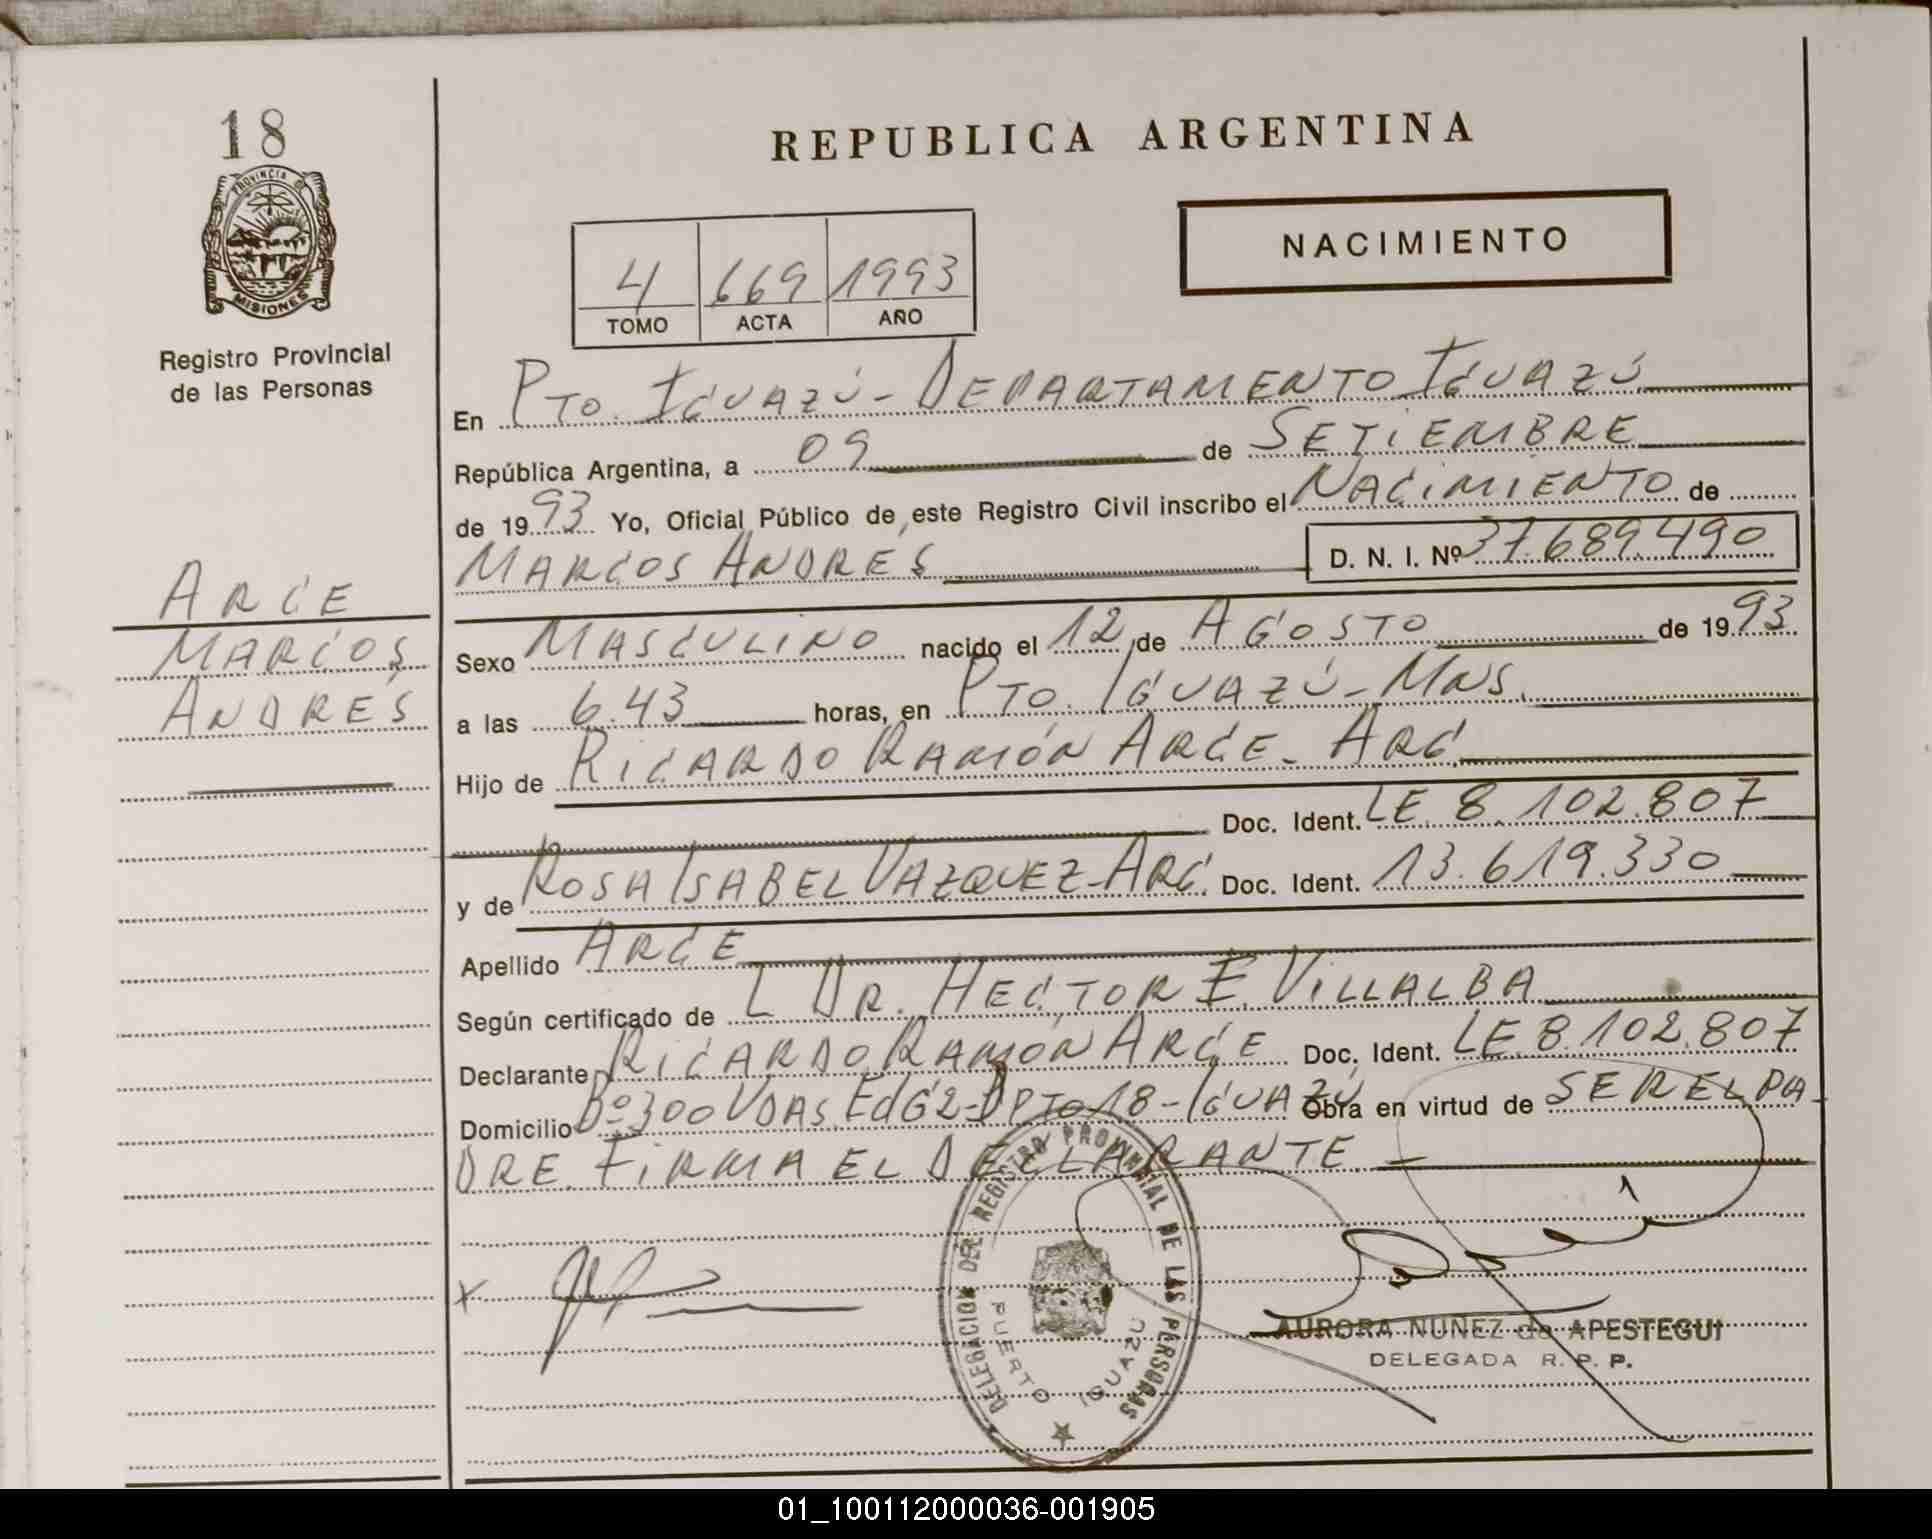 18
PROVINCIA DE
MISIONES
Registro Provincial
de las Personas
ARCE
MARCOS
ANDRÉS
REPUBLICA ARGENTINA
NACIMIENTO
4 669 1993
TOMO ACTA AÑO
En PTO. IGUAZÚ - DEPARTAMENTO IGUAZÚ
República Argentina, a 09 de SETIEMBRE
de 1993 Yo, Oficial Público de este Registro Civil inscribo el NACIMIENTO de
MARCOS ANDRÉS D. N. I. Nº 37.689.490
Sexo MASCULINO nacido el 12 de AGOSTO de 1993
a las 6.43 horas, en PTO. IGUAZÚ - MNS.
Hijo de RICARDO RAMÓN ARCE - ARG.
Doc. Ident. LE. 8.102.807
y de ROSA ISABEL VAZQUEZ - ARG. Doc. Ident. 13.619.330
Apellido ARCE
Según certificado de L DR. HECTOR E. VILLALBA
Declarante RICARDO RAMÓN ARCE Doc. Ident. LE. 8.102.807
Domicilio Bº 300 VDAS. EdG2 - DPTO 18 - IGUAZÚ Obra en virtud de SER EL PA-
DRE. FIRMA EL DECLARANTE
X
DELEGACION DEL REGISTRO PROVINCIAL DE LAS PERSONAS
PUERTO IGUAZU
AURORA NUÑEZ de APESTEGUI
DELEGADA R. P. P.
01_100112000036-001905